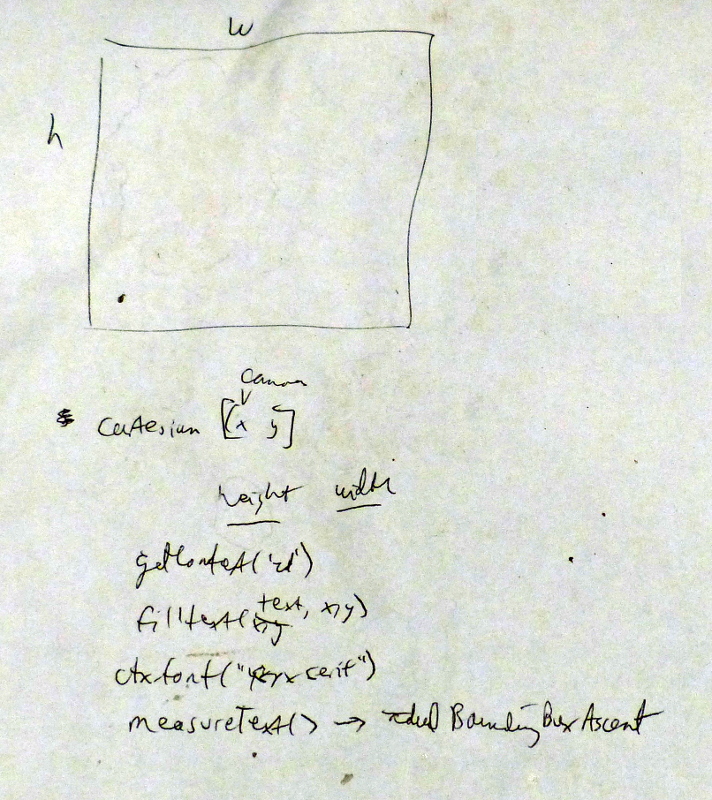 w
h
canvas
cartesian [x y]
height width
getContext('2d')
filltext(text, x,y)
ctx.font(" serif")
measureText() → BoundingBoxAscent